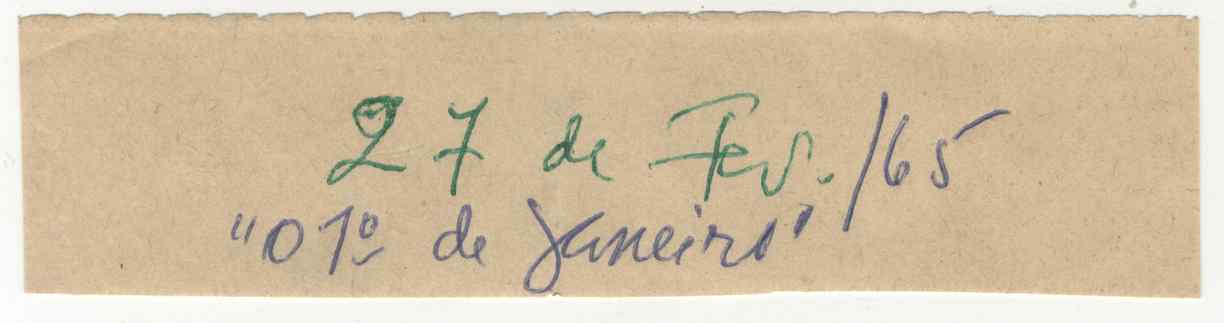 27 de Fev. /65
"O 1º de Janeiro"